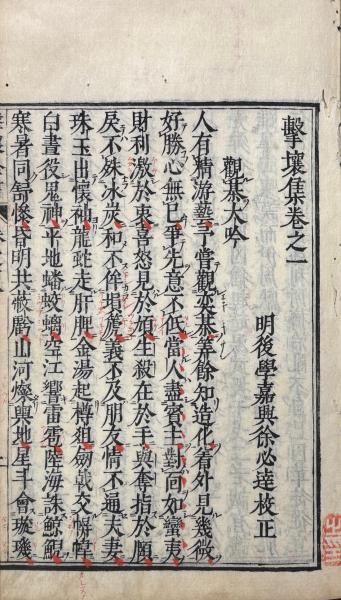 擊壤集卷之一
明後學嘉興徐必達校正
觀棊大吟
人有精游藝予嘗觀奕棊筭餘知造化着外見幾微
好勝心無已爭先意不低當人盡賓主對面如蠻夷
財利激於衷喜怒見於頄生殺在於手與奪指於頤
戾不殊冰炭和不侔塤篪義不及朋友情不逼夫妻
珠玉出懷袖龍蛇走肝脾金湯起樽俎劍戟交幃
白晝役鬼神平地蟠蛟螭空江響雷雹陸海誅鯨鯢
寒暑同舒慘昏明共蔽虧山河燦輿地星斗會璇璣